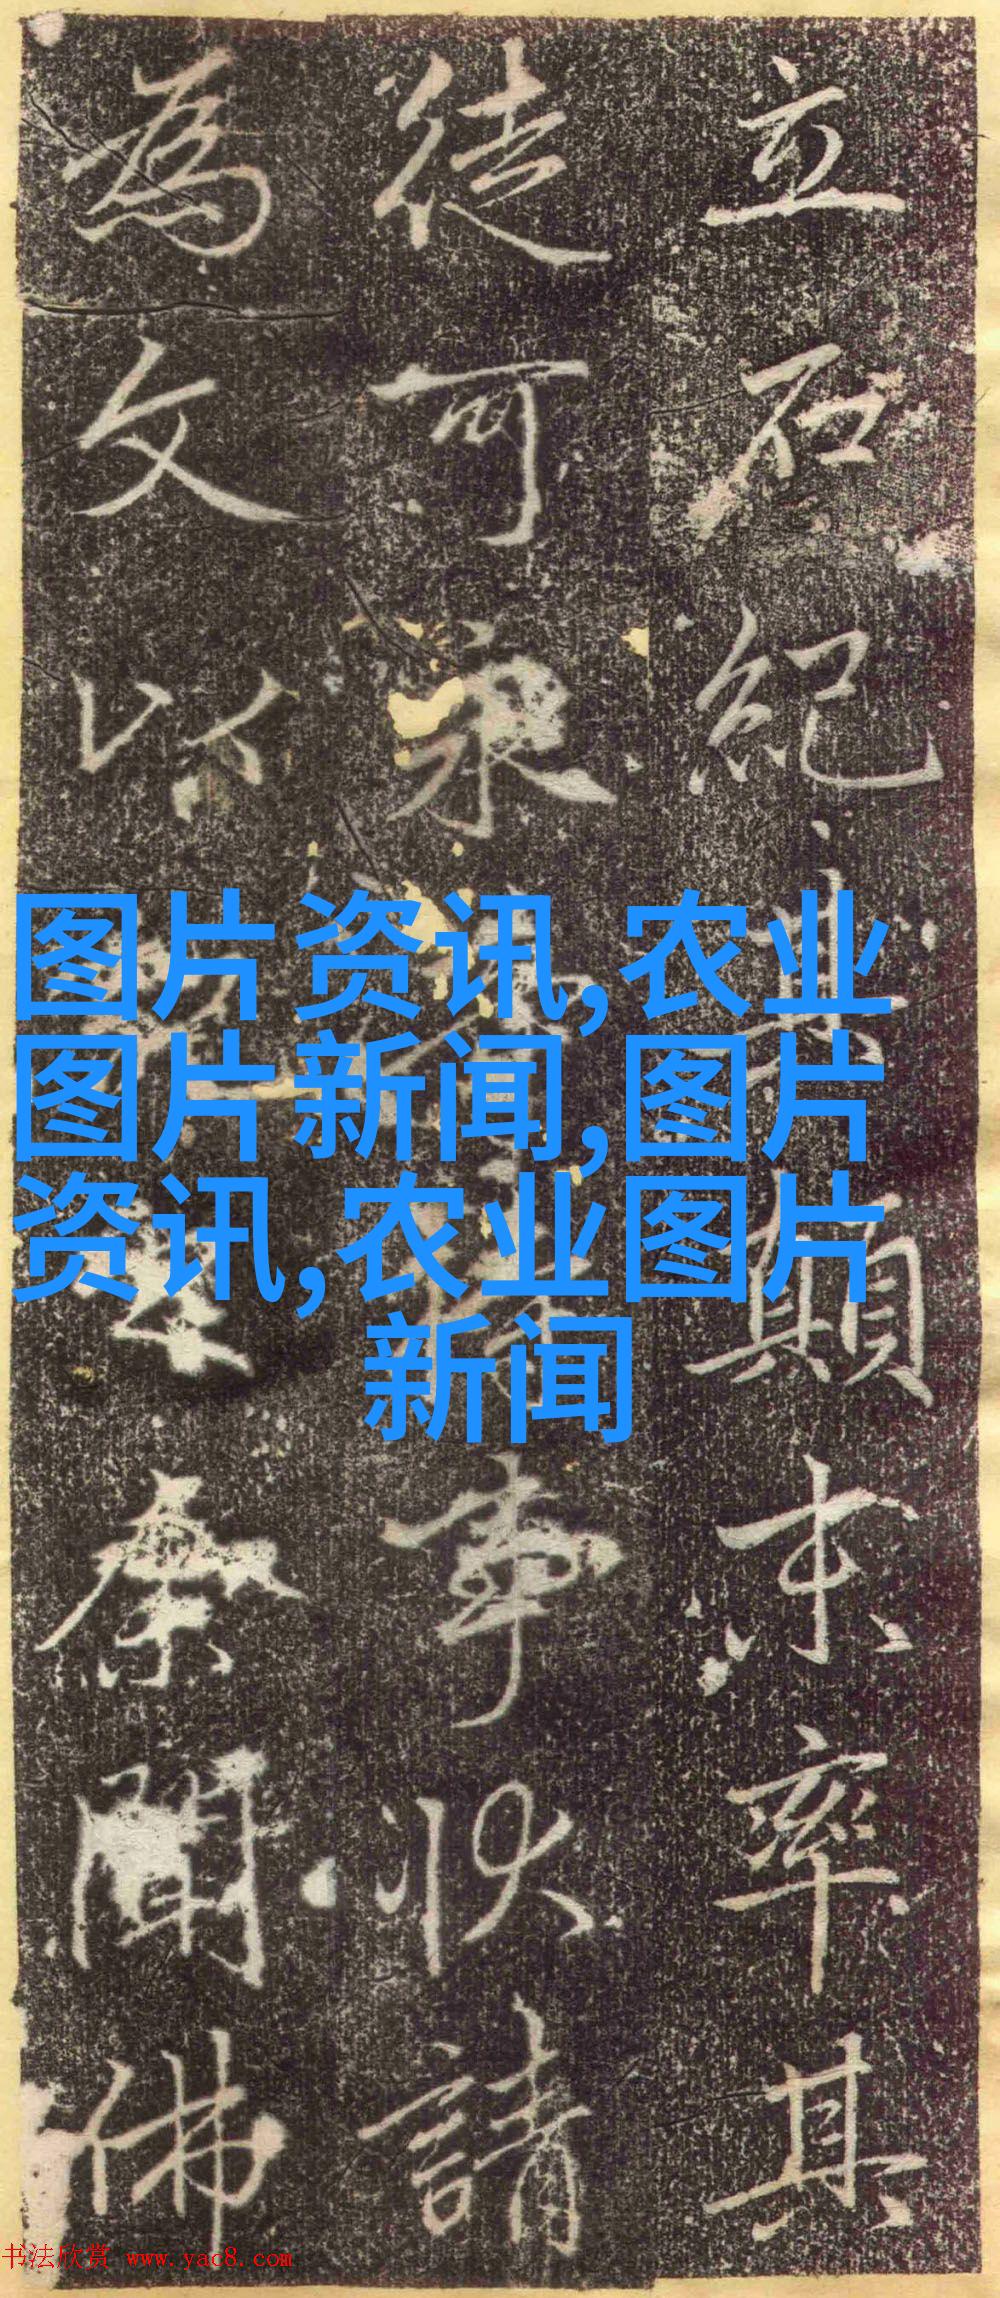 立石紀其顛末率其
徒可
事状請
為文以
余聞佛
图片资讯,农业
图片新闻,图片
资讯,农业图片
新闻
书法欣赏 www.yac8.com